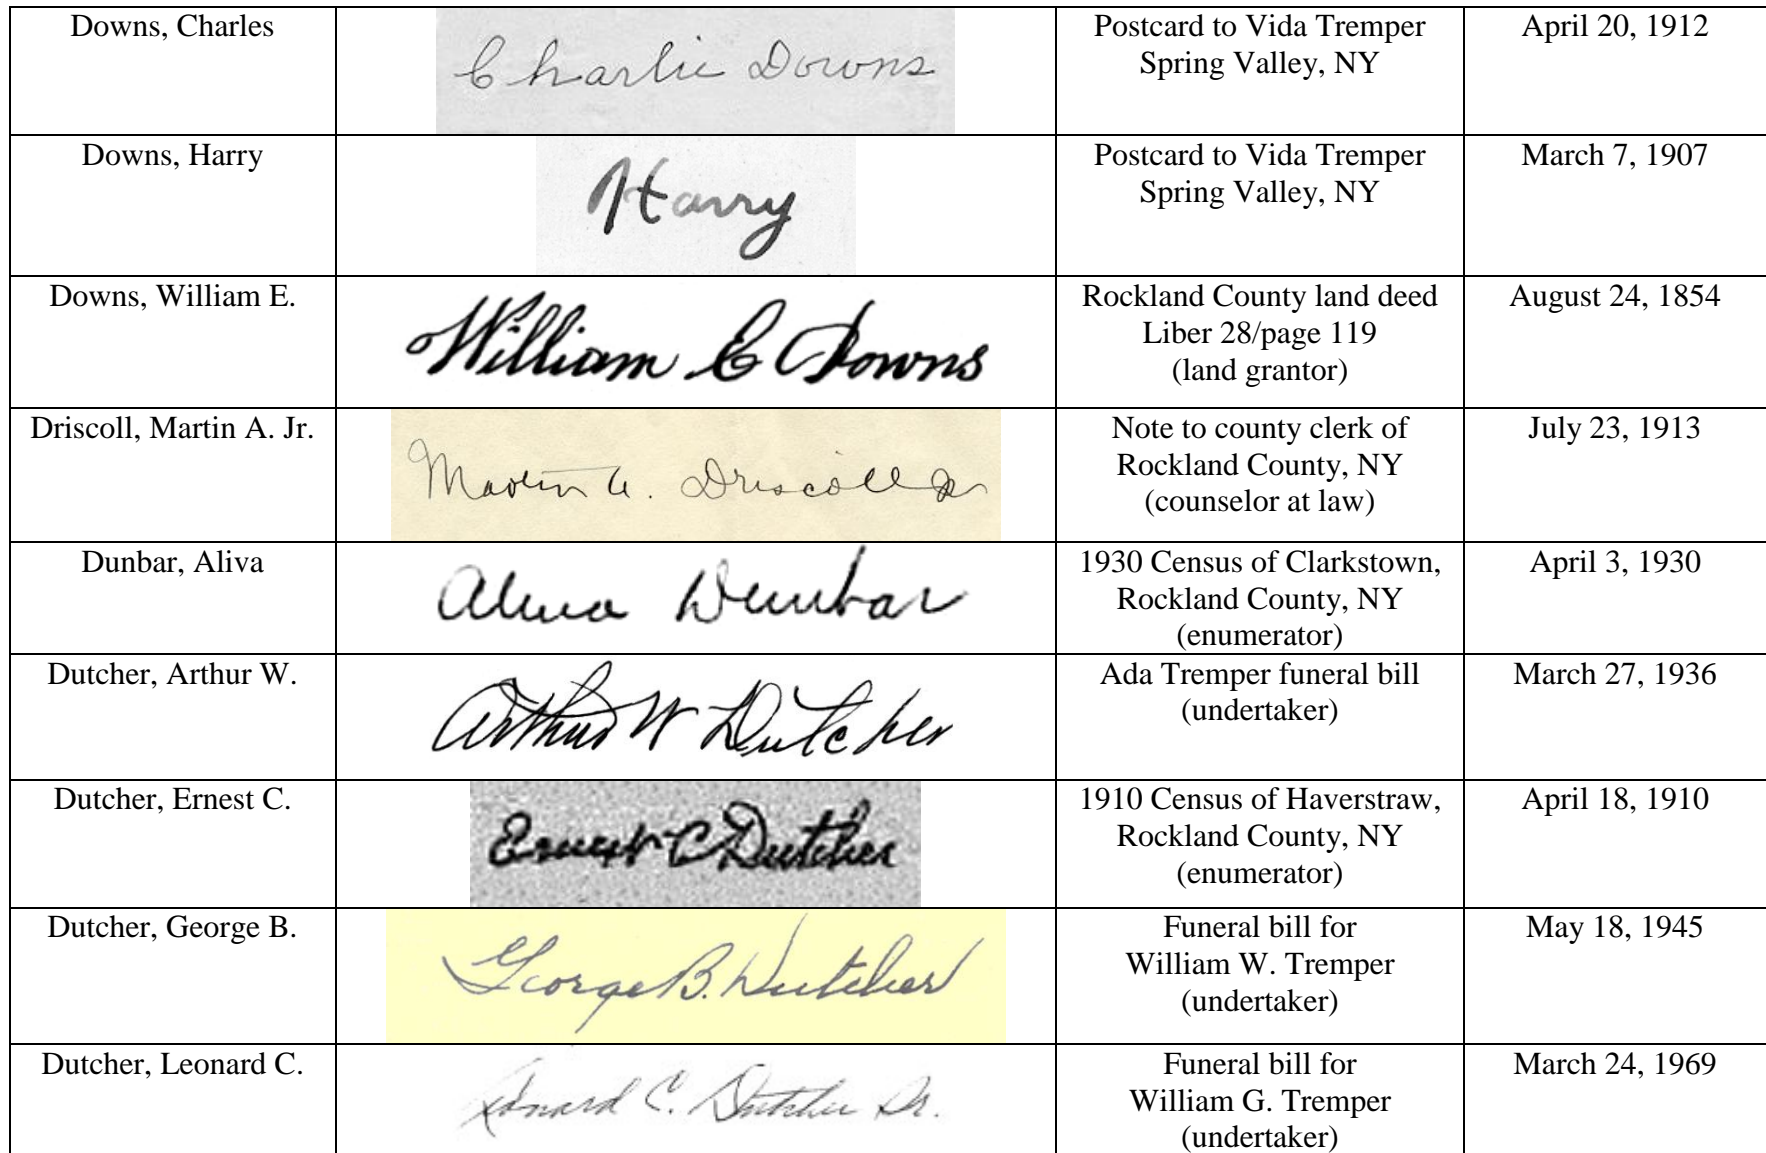 Downs, Charles
Charlie Downs
Postcard to Vida Tremper
Spring Valley, NY
April 20, 1912
Downs, Harry
Harry
Postcard to Vida Tremper
Spring Valley, NY
March 7, 1907
Downs, William E.
William E Downs
Rockland County land deed
Liber 28/page 119
(land grantor)
August 24, 1854
Driscoll, Martin A. Jr.
Martin A. Driscoll Jr
Note to county clerk of
Rockland County, NY
(counselor at law)
July 23, 1913
Dunbar, Aliva
Dunbar
1930 Census of Clarkstown,
Rockland County, NY
(enumerator)
April 3, 1930
Dutcher, Arthur W.
Arthur W Dutcher
Ada Tremper funeral bill
(undertaker)
March 27, 1936
Dutcher, Ernest C.
Ernest C Dutcher
1910 Census of Haverstraw,
Rockland County, NY
(enumerator)
April 18, 1910
Dutcher, George B.
George B. Dutcher
Funeral bill for
William W. Tremper
(undertaker)
May 18, 1945
Dutcher, Leonard C.
Leonard C. Dutcher
Funeral bill for
William G. Tremper
(undertaker)
March 24, 1969